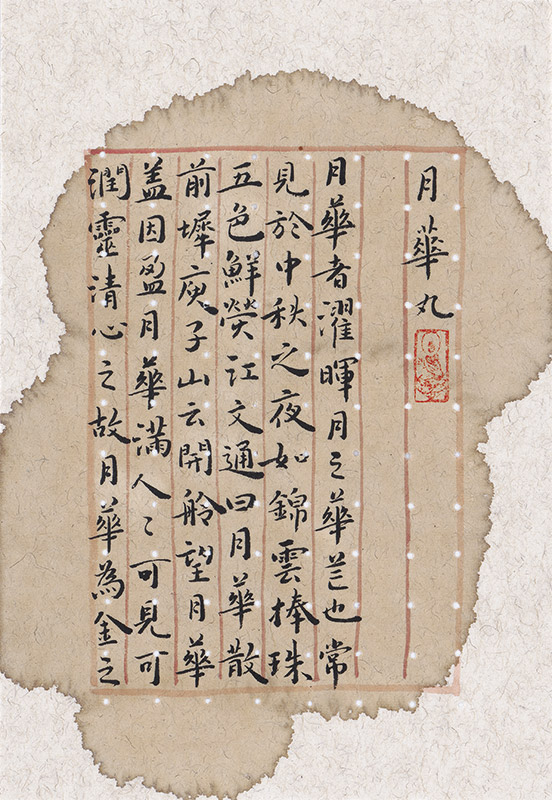 月華丸
月華者濯暉月之華芒也常
見於中秋之夜如錦雲捧珠
五色鮮熒江文通曰月華散
前墀庾子山云開舲望月華
盖因盈月華滿人〻可見可
潤靈清心之故月華為金之